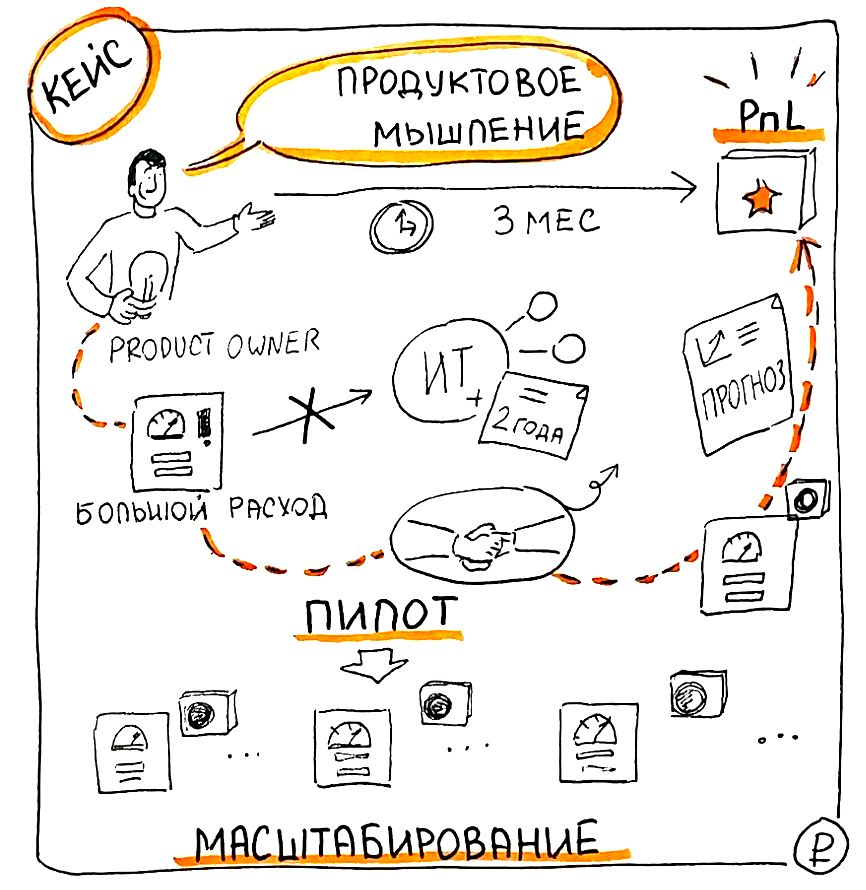 КЕЙС
ПРОДУКТОВОЕ
МЫШЛЕНИЕ
PnL
3 МЕС
PRODUCT OWNER
ИТ
+
2 ГОДА
ПРОГНОЗ
БОЛЬШОЙ РАСХОД
ПИЛОТ
МАСШТАБИРОВАНИЕ
₽